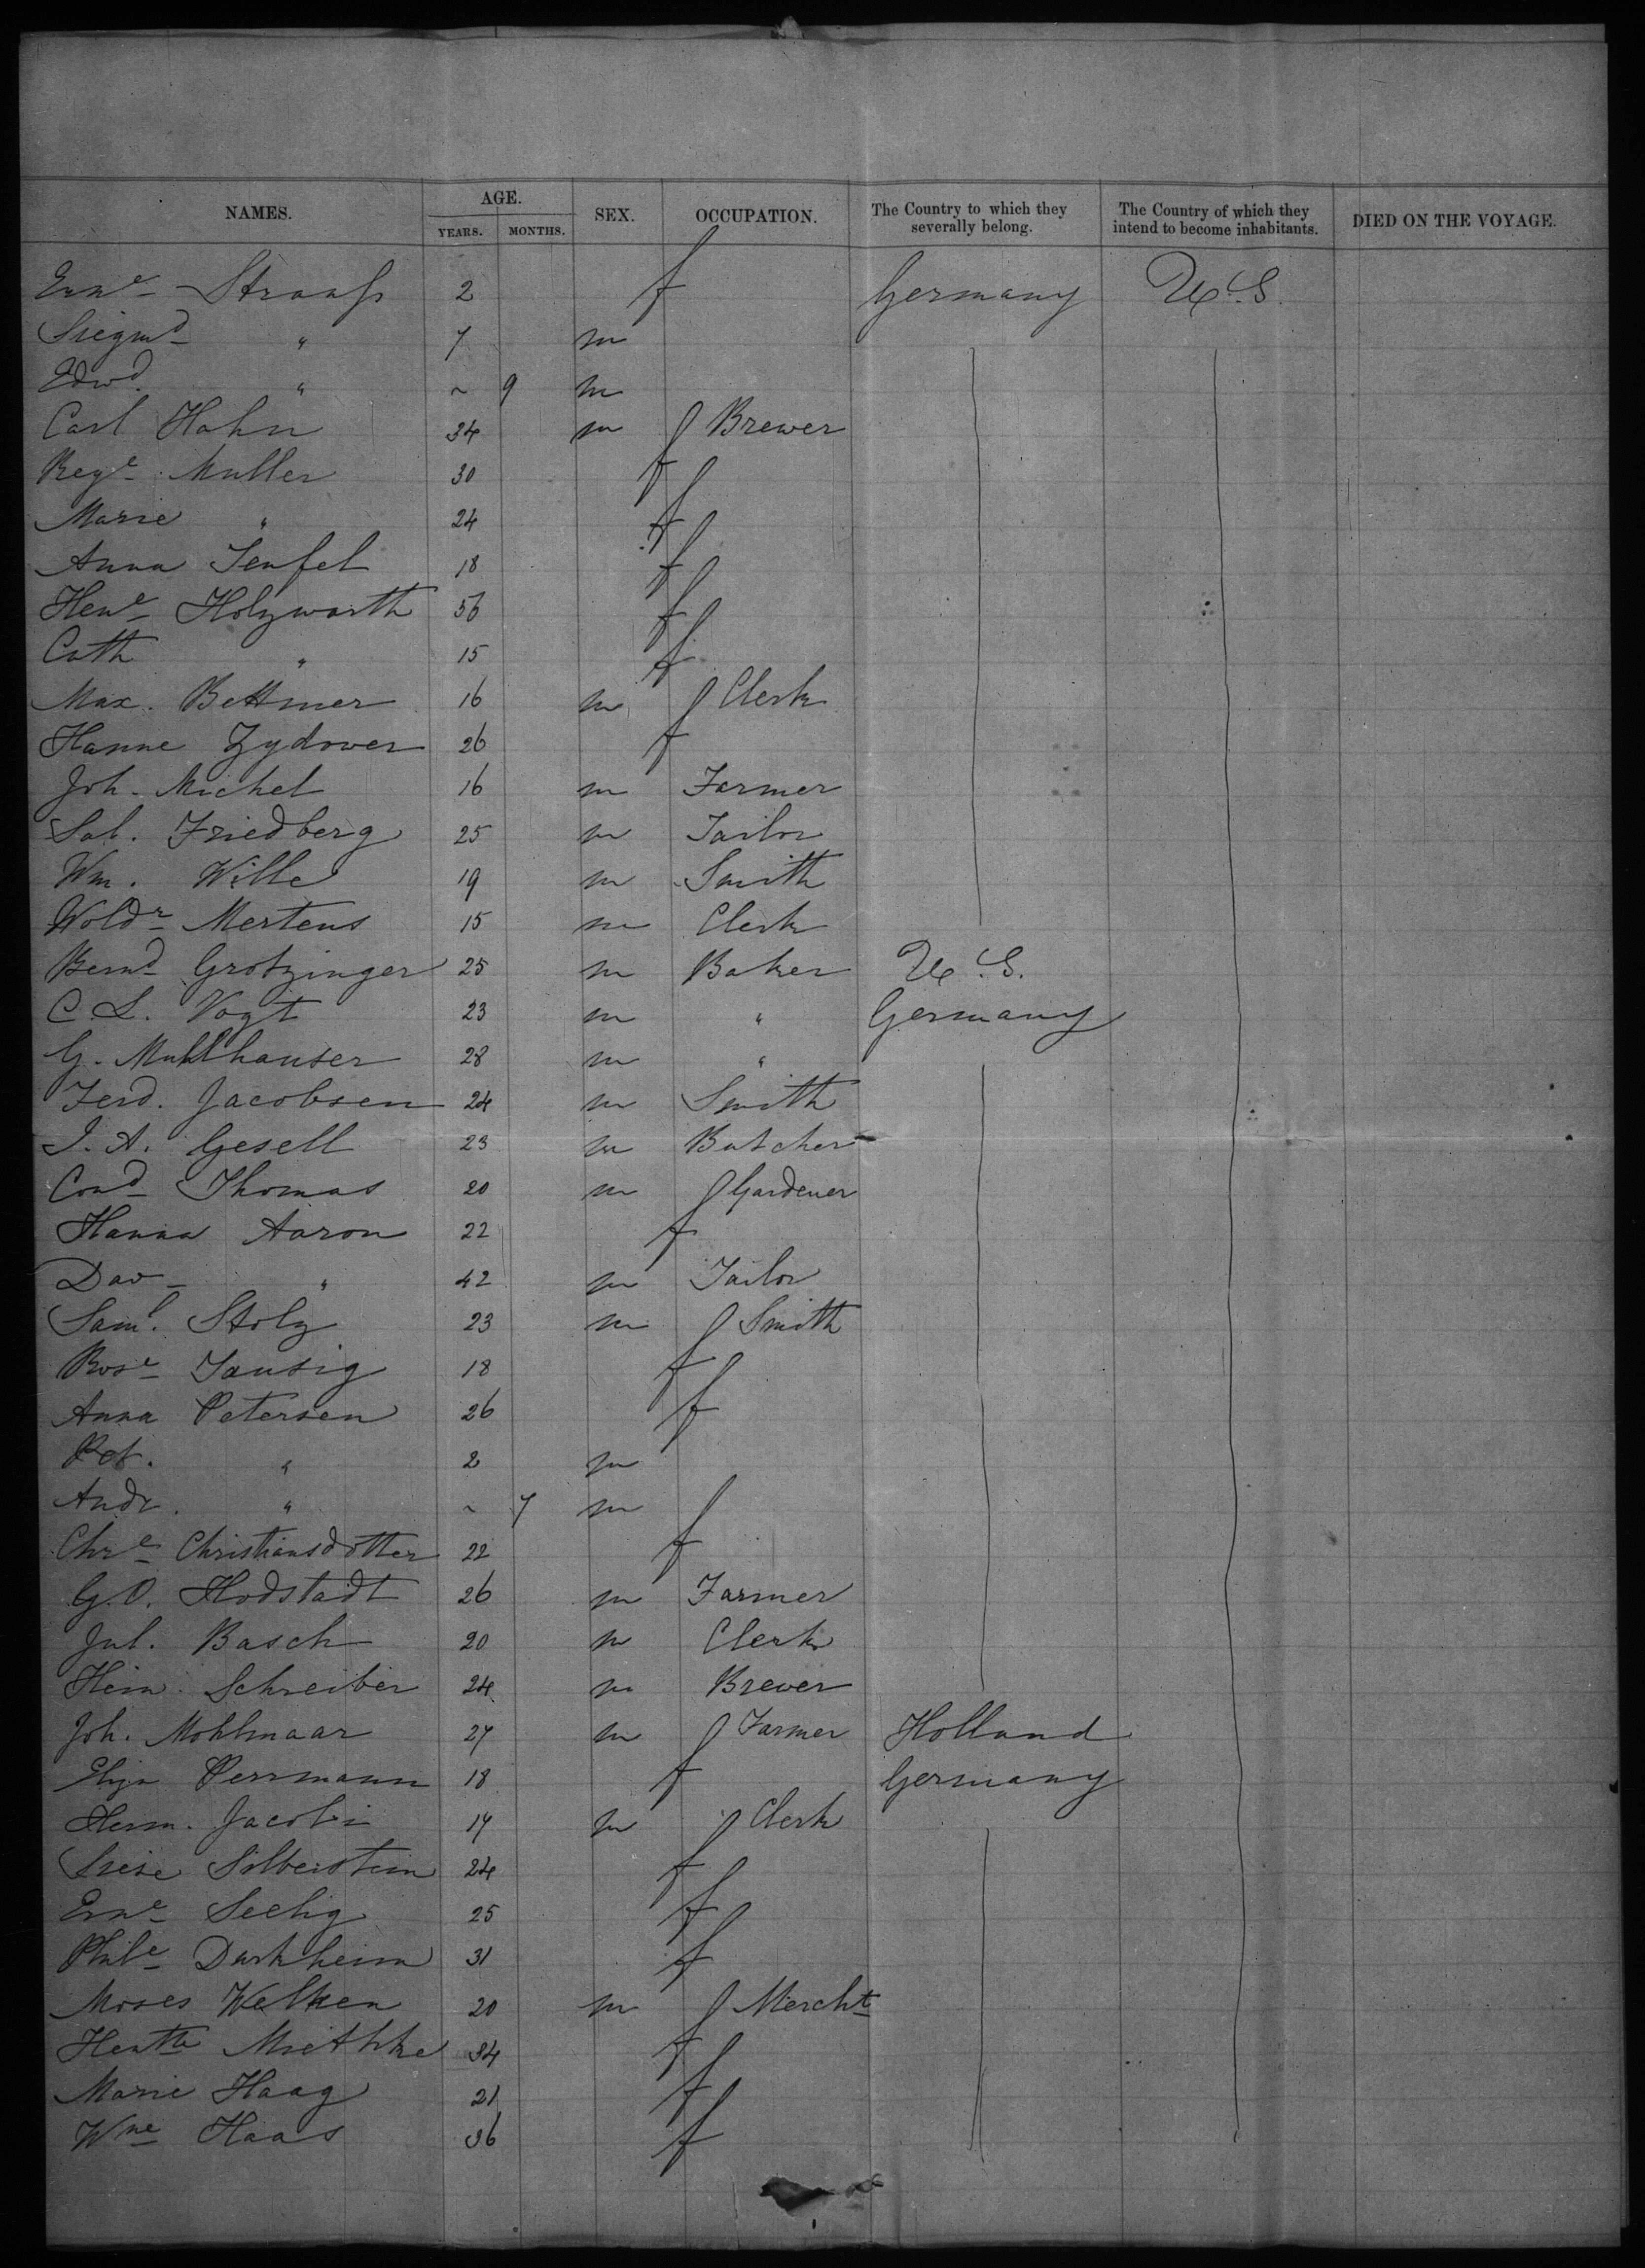 NAMES. AGE. SEX. OCCUPATION. The Country to which they severally belong. The Country of which they intend to become inhabitants. DIED ON THE VOYAGE.
YEARS. MONTHS.
Erne Strauss 2 f Germany U.S.
Siegmd " 7 m
Edwd " ~ 9 m
Carl Hahn 34 m Brewer
Rege Muller 30 f
Marie " 24 f
Anna Teufel 18 f
Hene Holzwarth 56 f
Cath " 15 f
Max. Bettmer 16 m Clerk
Hanne Zydower 26 f
Joh. Michel 16 m Farmer
Sal. Friedberg 25 m Tailor
Wm. Wille 19 m Smith
Woldr Mertens 15 m Clerk
Bernd Grotzinger 25 m Baker U.S.
C. L. Vogt 23 m " Germany
G. Muhlhauser 28 m "
Ferd. Jacobsen 24 m Smith
J. A. Gesell 23 m Butcher
Cond Thomas 20 m Gardener
Hanna Aaron 22 f
Dav " 42 m Tailor
Saml. Stolz 23 m Smith
Rose Tausig 18 f
Anna Petersen 26 f
Pet. " 2 m
Andr. " ~ 7 m
Chre Christiansdotter 22 f
G. O. Hodstadt 26 m Farmer
Jul. Basch 20 m Clerk
Hein. Schreiber 24 m Brewer
Joh. Mohlmaar 27 m Farmer Holland
Eliza Perrmann 18 f Germany
Herm. Jacobi 17 m Clerk
Silberstein 24 f
Erne Seelig 25 f
Phile Durkheim 31 f
Moses Welken 20 m Mercht
Hentte Miethke 34 f
Marie Haag 21 f
Wne Haas 36 f